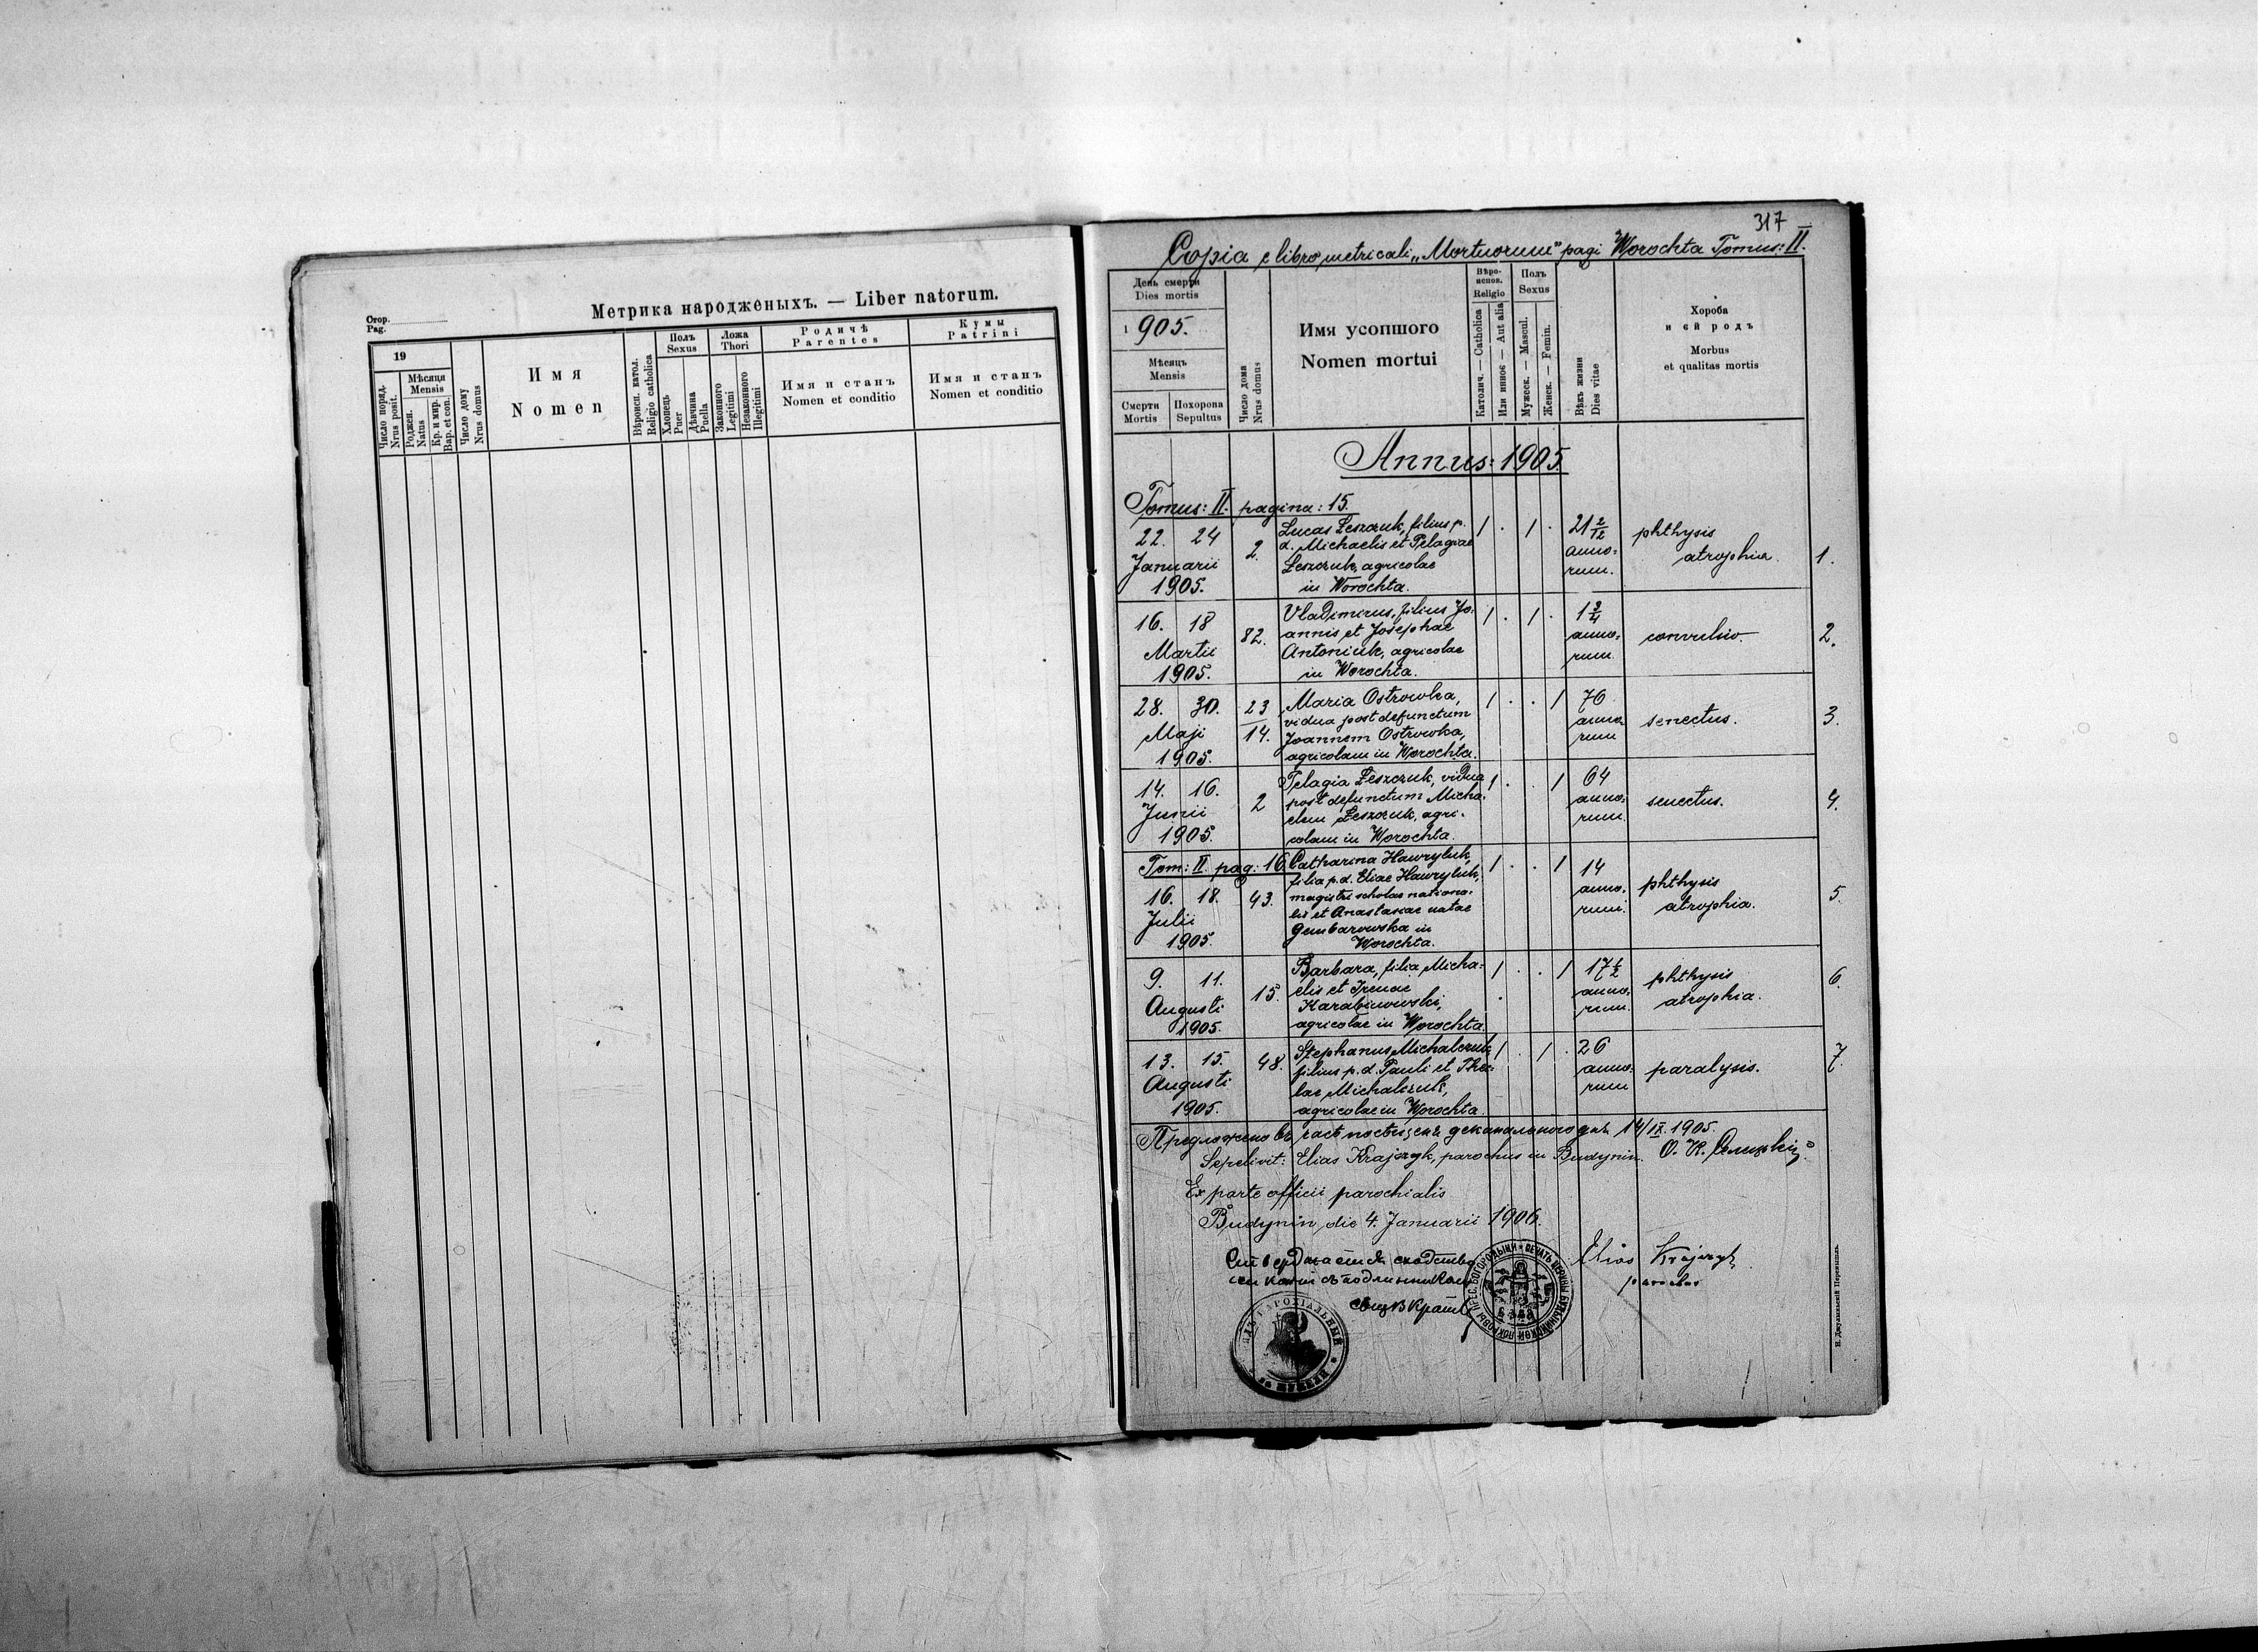 Стор.
Pag.
Метрика народженыхъ. — Liber natorum.
19
Число поряд.
Nrus posit.
Мѣсяця
Mensis
Роджен.
Natus
Кр. и мѵр.
Bap. et con.
Число дому
Nrus domus
Имя
Nomen
Вѣроисп. катол.
Religio catholica
Полъ
Sexus
Хлопець
Puer
Дѣвчина
Puella
Ложа
Thori
Законного
Legitimi
Незаконного
Illegitimi
Родичѣ
Parentes
Имя и станъ
Nomen et conditio
Кумы
Patrini
Имя и станъ
Nomen et conditio
317
Copia e libro metricali „Mortuorum" pagi Worochta Tomus: II.
День смерти
Dies mortis
1905.
Мѣсяцъ
Mensis
Смерти
Mortis
Похорона
Sepultus
Число дома
Nrus domus
Имя усопшого
Nomen mortui
Вѣро-
испов.
Religio
Католич. — Catholica
Или инное — Aut alia
Полъ
Sexus
Мужеск. — Mascul.
Женск. — Femin.
Вѣкъ жизни
Dies vitae
Хороба
и єй родъ
Morbus
et qualitas mortis
Annus: 1905
Tomus: II. pagina: 15.
22. 24
Januarii
1905.
2.
Lucas Leszczuk, filius p.
d. Michaelis et Pelagiae
Leszczuk, agricolae
in Worochta.
1 . 1 .
21 2/12
anno-
rum.
phthysis
atrophia
1.
16. 18
Martii
1905.
82.
Vladimirus, filius Jo-
annis et Josephae
Antoniuk, agricolae
in Worochta.
1 . 1 .
1 3/4
anno-
rum
convulsio.
2.
28. 30.
Maji
1905.
23
14.
Maria Ostrowka,
vidua post defunctum
Joannem Ostrowka,
agricolam in Worochta.
1 . . 1
76
anno-
rum
senectus.
3.
14. 16.
Junii
1905.
2
Pelagia Leszczuk, vidua
post defunctum Micha-
elem Leszczuk, agri-
colam in Worochta.
1 . . 1
64
anno-
rum.
senectus.
4.
Tom: II. pag: 16.
16. 18.
Julii
1905.
43.
Catharina Hawryluk,
filia p.d. Eliae Hawryluk,
magistri scholae nationa-
lis et Anastasiae natae
Gembarowska in
Worochta.
1 . . 1
14
anno-
rum.
phthysis
atrophia.
5.
9. 11.
Augusti
1905.
15.
Barbara, filia Micha-
elis et Irenae
Karabinowski,
agricolae in Worochta.
1 . . 1
17 1/2
anno-
rum.
phthysis
atrophia.
6.
13. 15.
Augusti
1905.
48.
Stephanus Michalczuk
filius p.d. Pauli et The-
lae Michalczuk,
agricolae in Worochta
1 . 1 .
26
anno-
rum
paralysis.
7.
Предложено въ часѣ посѣщен. деканального дня 14/IX. 1905.
Sepelivit: Elias Krajczyk, parochus in Budynin.
Ex parte officii parochialis
Budynin, die 4. Januarii 1906.
Elias Krajczyk
parochus
Н. Джулыньскій Перемышль.